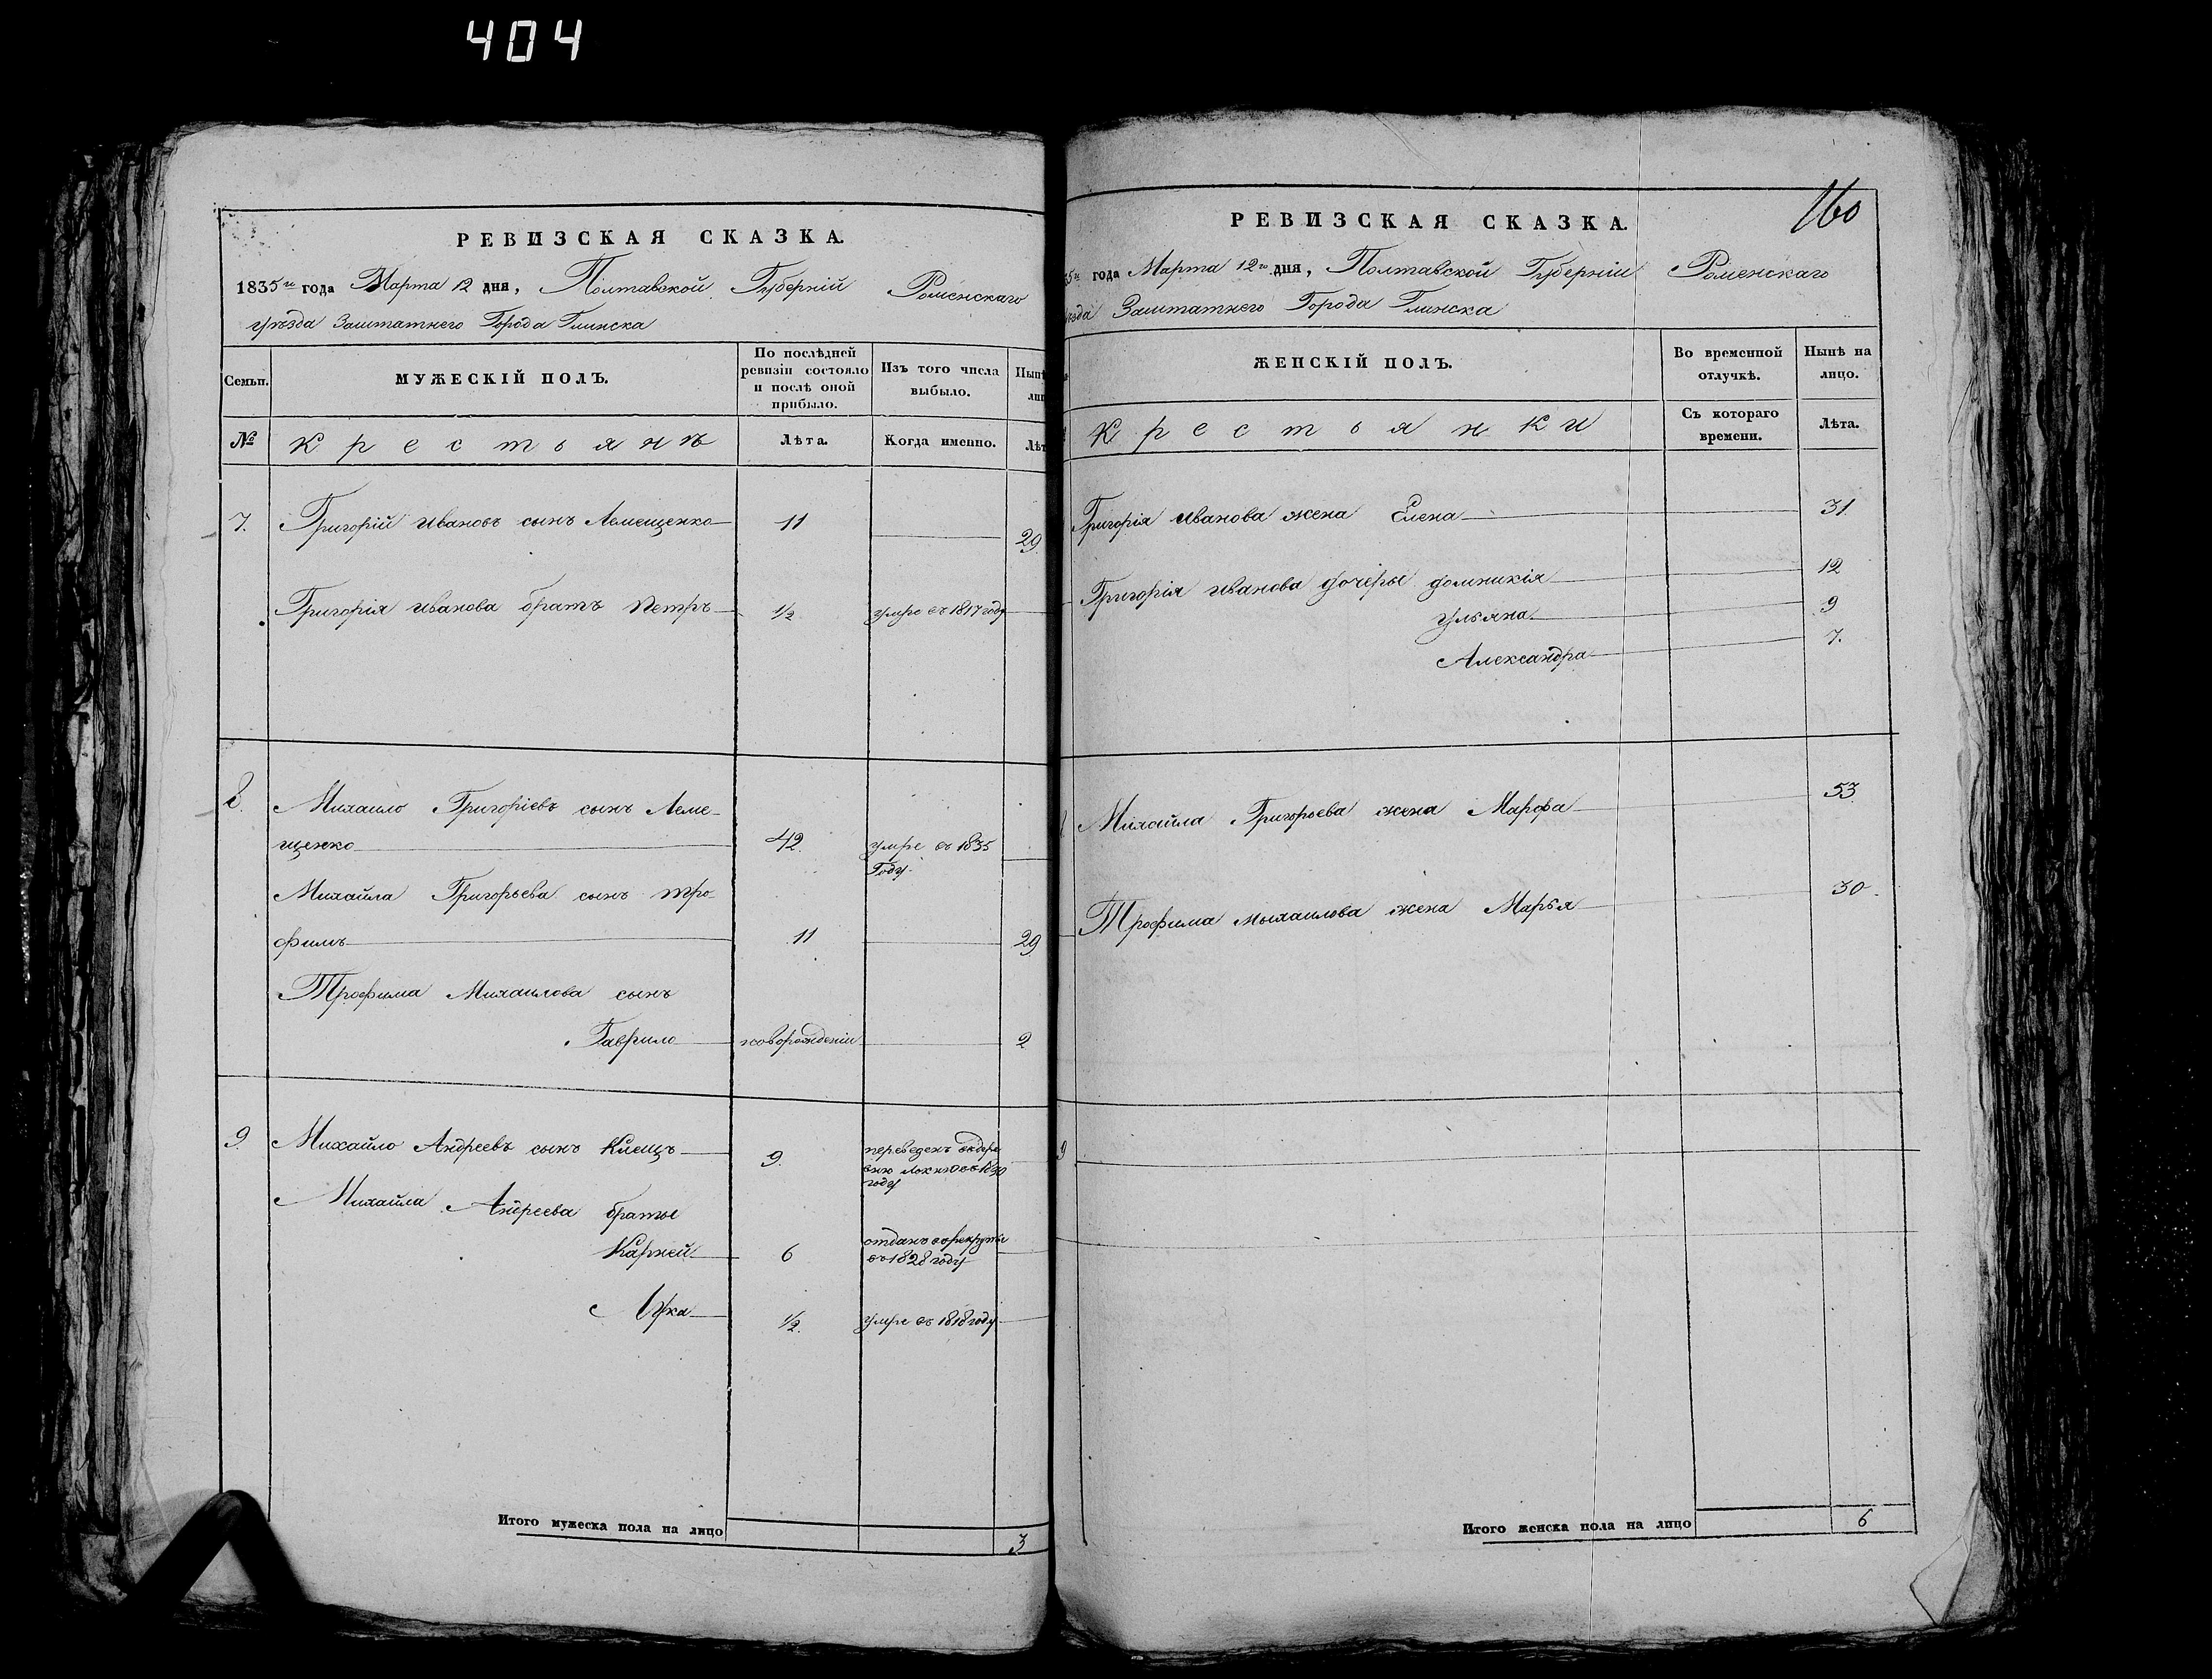 404
РЕВИЗСКАЯ СКАЗКА.
1835го года Марта 12 дня, Полтавской Губерній Роменскаго
уѣзда Заштатнего Города Глинска
Семьи.
МУЖЕСКІЙ ПОЛЪ.
По послѣдней ревизіи состояло и послѣ оной прибыло.
Изъ того числа выбыло.
Нынѣ
лиц
№
Крестьянъ
Лѣта.
Когда именно.
Лѣт
7. Григорій Ивановъ сынъ Лемещенко 11 29
Григорія Иванова братъ Петръ 1/2 умре въ 1817 году
8. Михаило Григоріевъ сынъ Леме-
щенко 42. умре въ 1835
Году.
Михайла Григорьева сынъ Тро-
фимъ 11 29
Трофима Михаилова сынъ
Гаврило новорожденій 2
9. Михайло Андреевъ сынъ 9. переведенъ въ дере
вню въ 1830
году
Михайла Андреева братья
Карней 6 отданъ в рекруты
въ 1828 году
1/2. умре въ 1818 году
Итого мужеска пола на лицо 3
160
РЕВИЗСКАЯ СКАЗКА.
35го года Марта 12го дня, Полтавской Губерніи Роменскаго
ѣзда Заштатнего Города Глинска
ЖЕНСКІЙ ПОЛЪ.
Во временной отлучкѣ.
Нынѣ на лицо.
Крестьянки
Съ котораго времени.
Лѣта.
Григорія Иванова жена Елена 31.
Григорія Иванова дочери Домникія 12
Ульяна 9
Александра 7.
Михайла Григорьева жена Марфа 53
Трофима Мыхаилова жена Марья 30
9
Итого женска пола на лицо 6